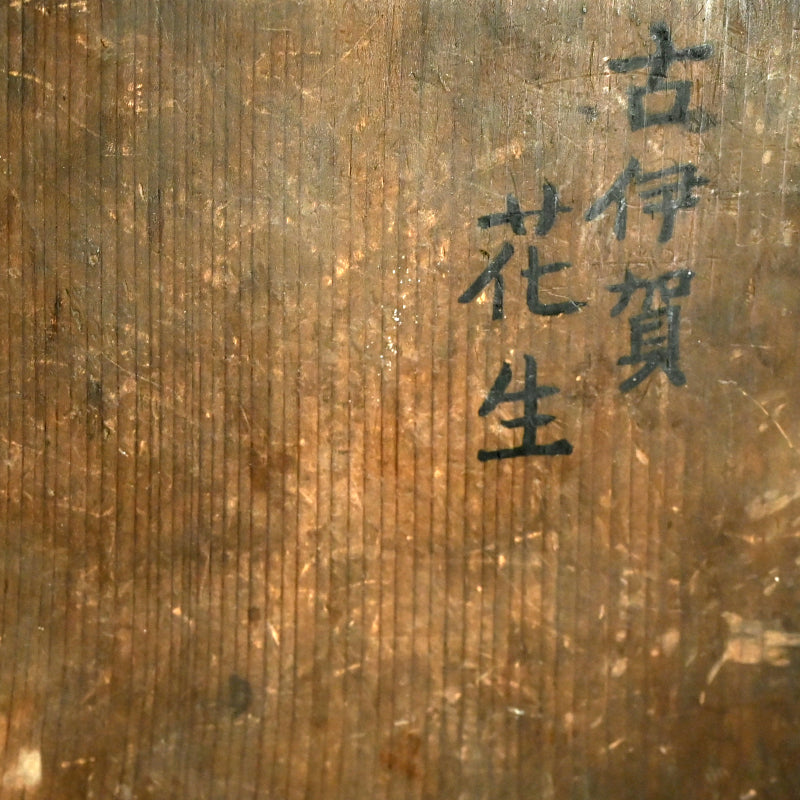 古伊賀
花生